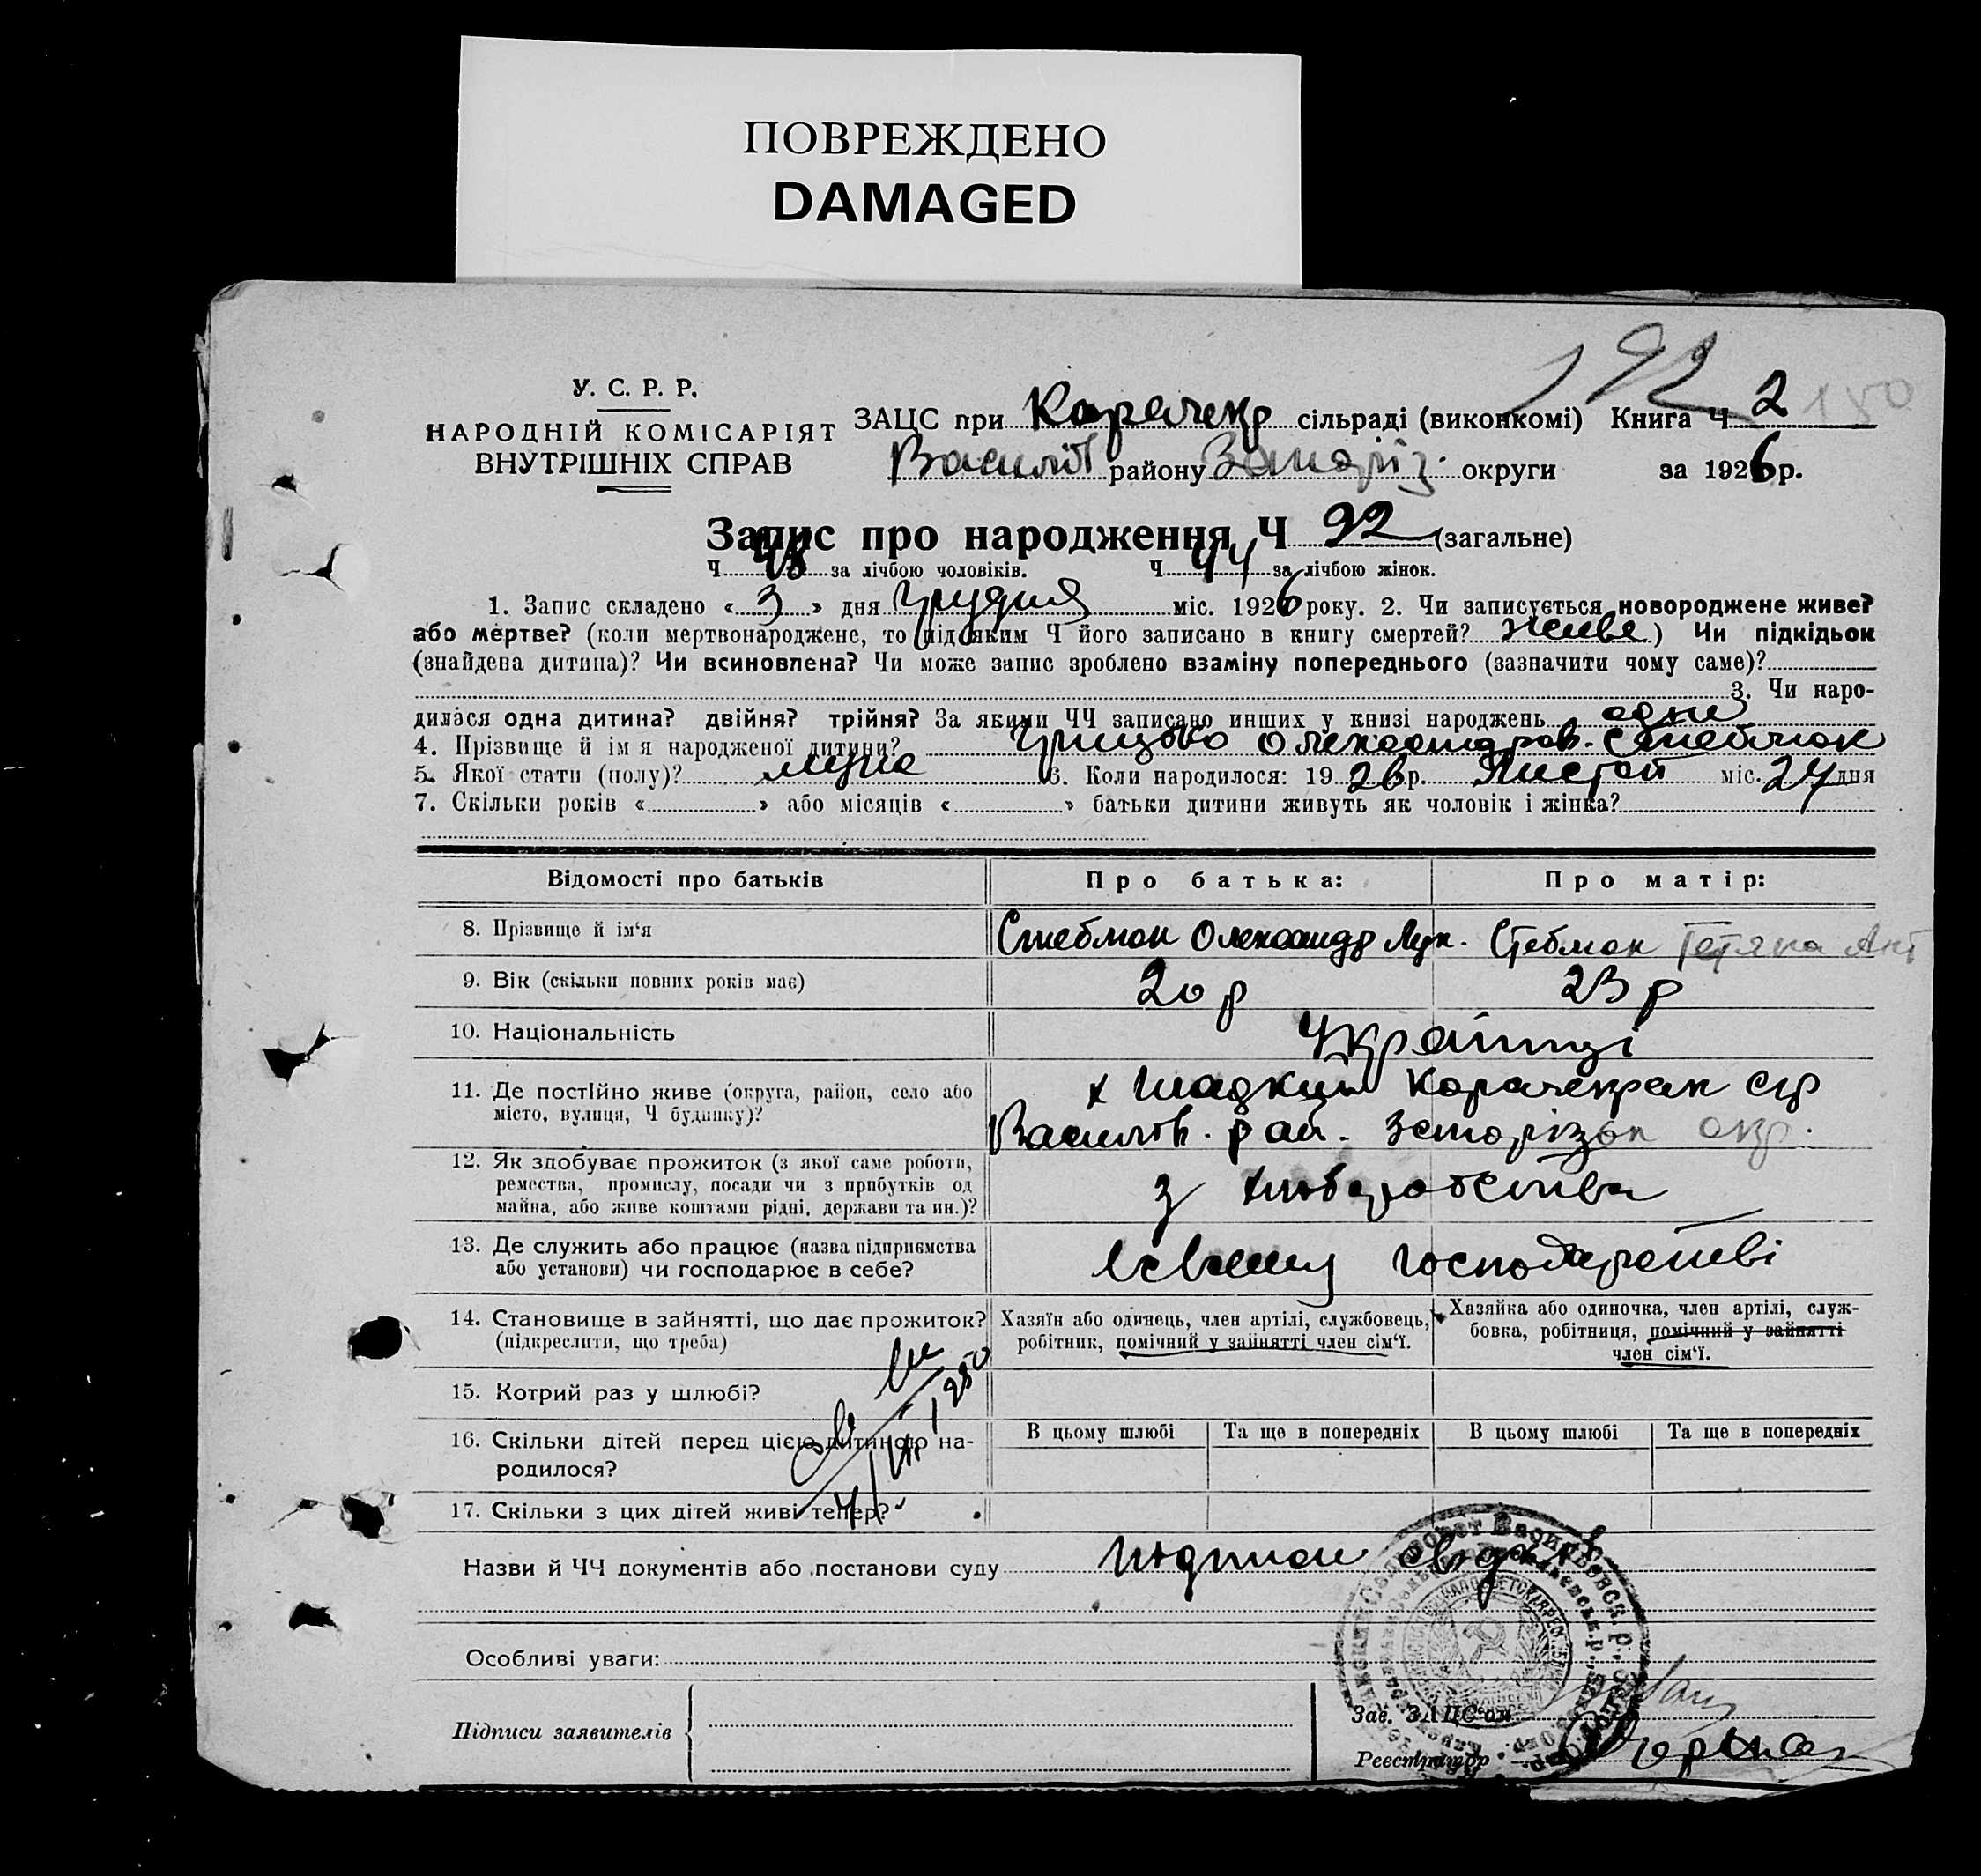 ПОВРЕЖДЕНО
DAMAGED
192
150
У. С. Р. Р.
НАРОДНІЙ КОМІСАРІЯТ
ВНУТРІШНІХ СПРАВ
ЗАЦС при Карачекр сільраді (виконкомі) Книга Ч 2
Василів району Запоріз. округи за 1926 р.
Запис про народження Ч 92 (загальне)
Ч 48 за лічбою чоловіків. Ч 44 за лічбою жінок.
1. Запис складено « 3 » дня Грудня міс. 1926 року. 2. Чи записується новороджене живе?
або мертве? (коли мертвонароджене, то під яким Ч його записано в книгу смертей? живе ) Чи підкідьок
(знайдена дитина)? Чи всиновлена? Чи може запис зроблено взаміну попереднього (зазначити чому саме)?
3. Чи наро-
дилася одна дитина? двійня? трійня? За якими ЧЧ записано инших у книзі народжень одне
4. Прізвище й ім я народженої дитини? Олександров. Стеблюк
5. Якої стати (полу)? 6. Коли народилося: 1926 р. Листоп міс. 24 дня
7. Скільки років « » або місяців « » батьки дитини живуть як чоловік і жінка?
Відомості про батьків Про батька: Про матір:
8. Прізвище й ім‘я Стеблюк Олександр Лук. Стеблюк Тетяна Ант
9. Вік (скільки повних років має) 20 р 23 р
10. Національність Українці
11. Де постійно живе (округа, район, село або
місто, вулиця, Ч будинку)?
х Карачекрак с/р
Василів. рай. Запорізьк окр.
12. Як здобуває прожиток (з якої саме роботи,
ремества, промислу, посади чи з прибутків од
майна, або живе коштами рідні, держави та ин.)?
з хліборобства
13. Де служить або працює (назва підприємства
або установи) чи господарює в себе?
в своему господарстві
14. Становище в зайнятті, що дає прожиток?
(підкреслити, що треба)
Хазяїн або одинець, член артілі, службовець,
робітник, помічний у зайнятті член сім‘ї.
Хазяйка або одиночка, член артілі, служ-
бовка, робітниця, помічний у зайнятті
член сім‘ї.
15. Котрий раз у шлюбі?
16. Скільки дітей перед цією дитиною на-
родилося?
В цьому шлюбі Та ще в попередніх В цьому шлюбі Та ще в попередніх
17. Скільки з цих дітей живі тепер?
Назви й ЧЧ документів або постанови суду
Особливі уваги:
Підписи заявителів
Зав. ЗАЦС‘ом
Реєстратор